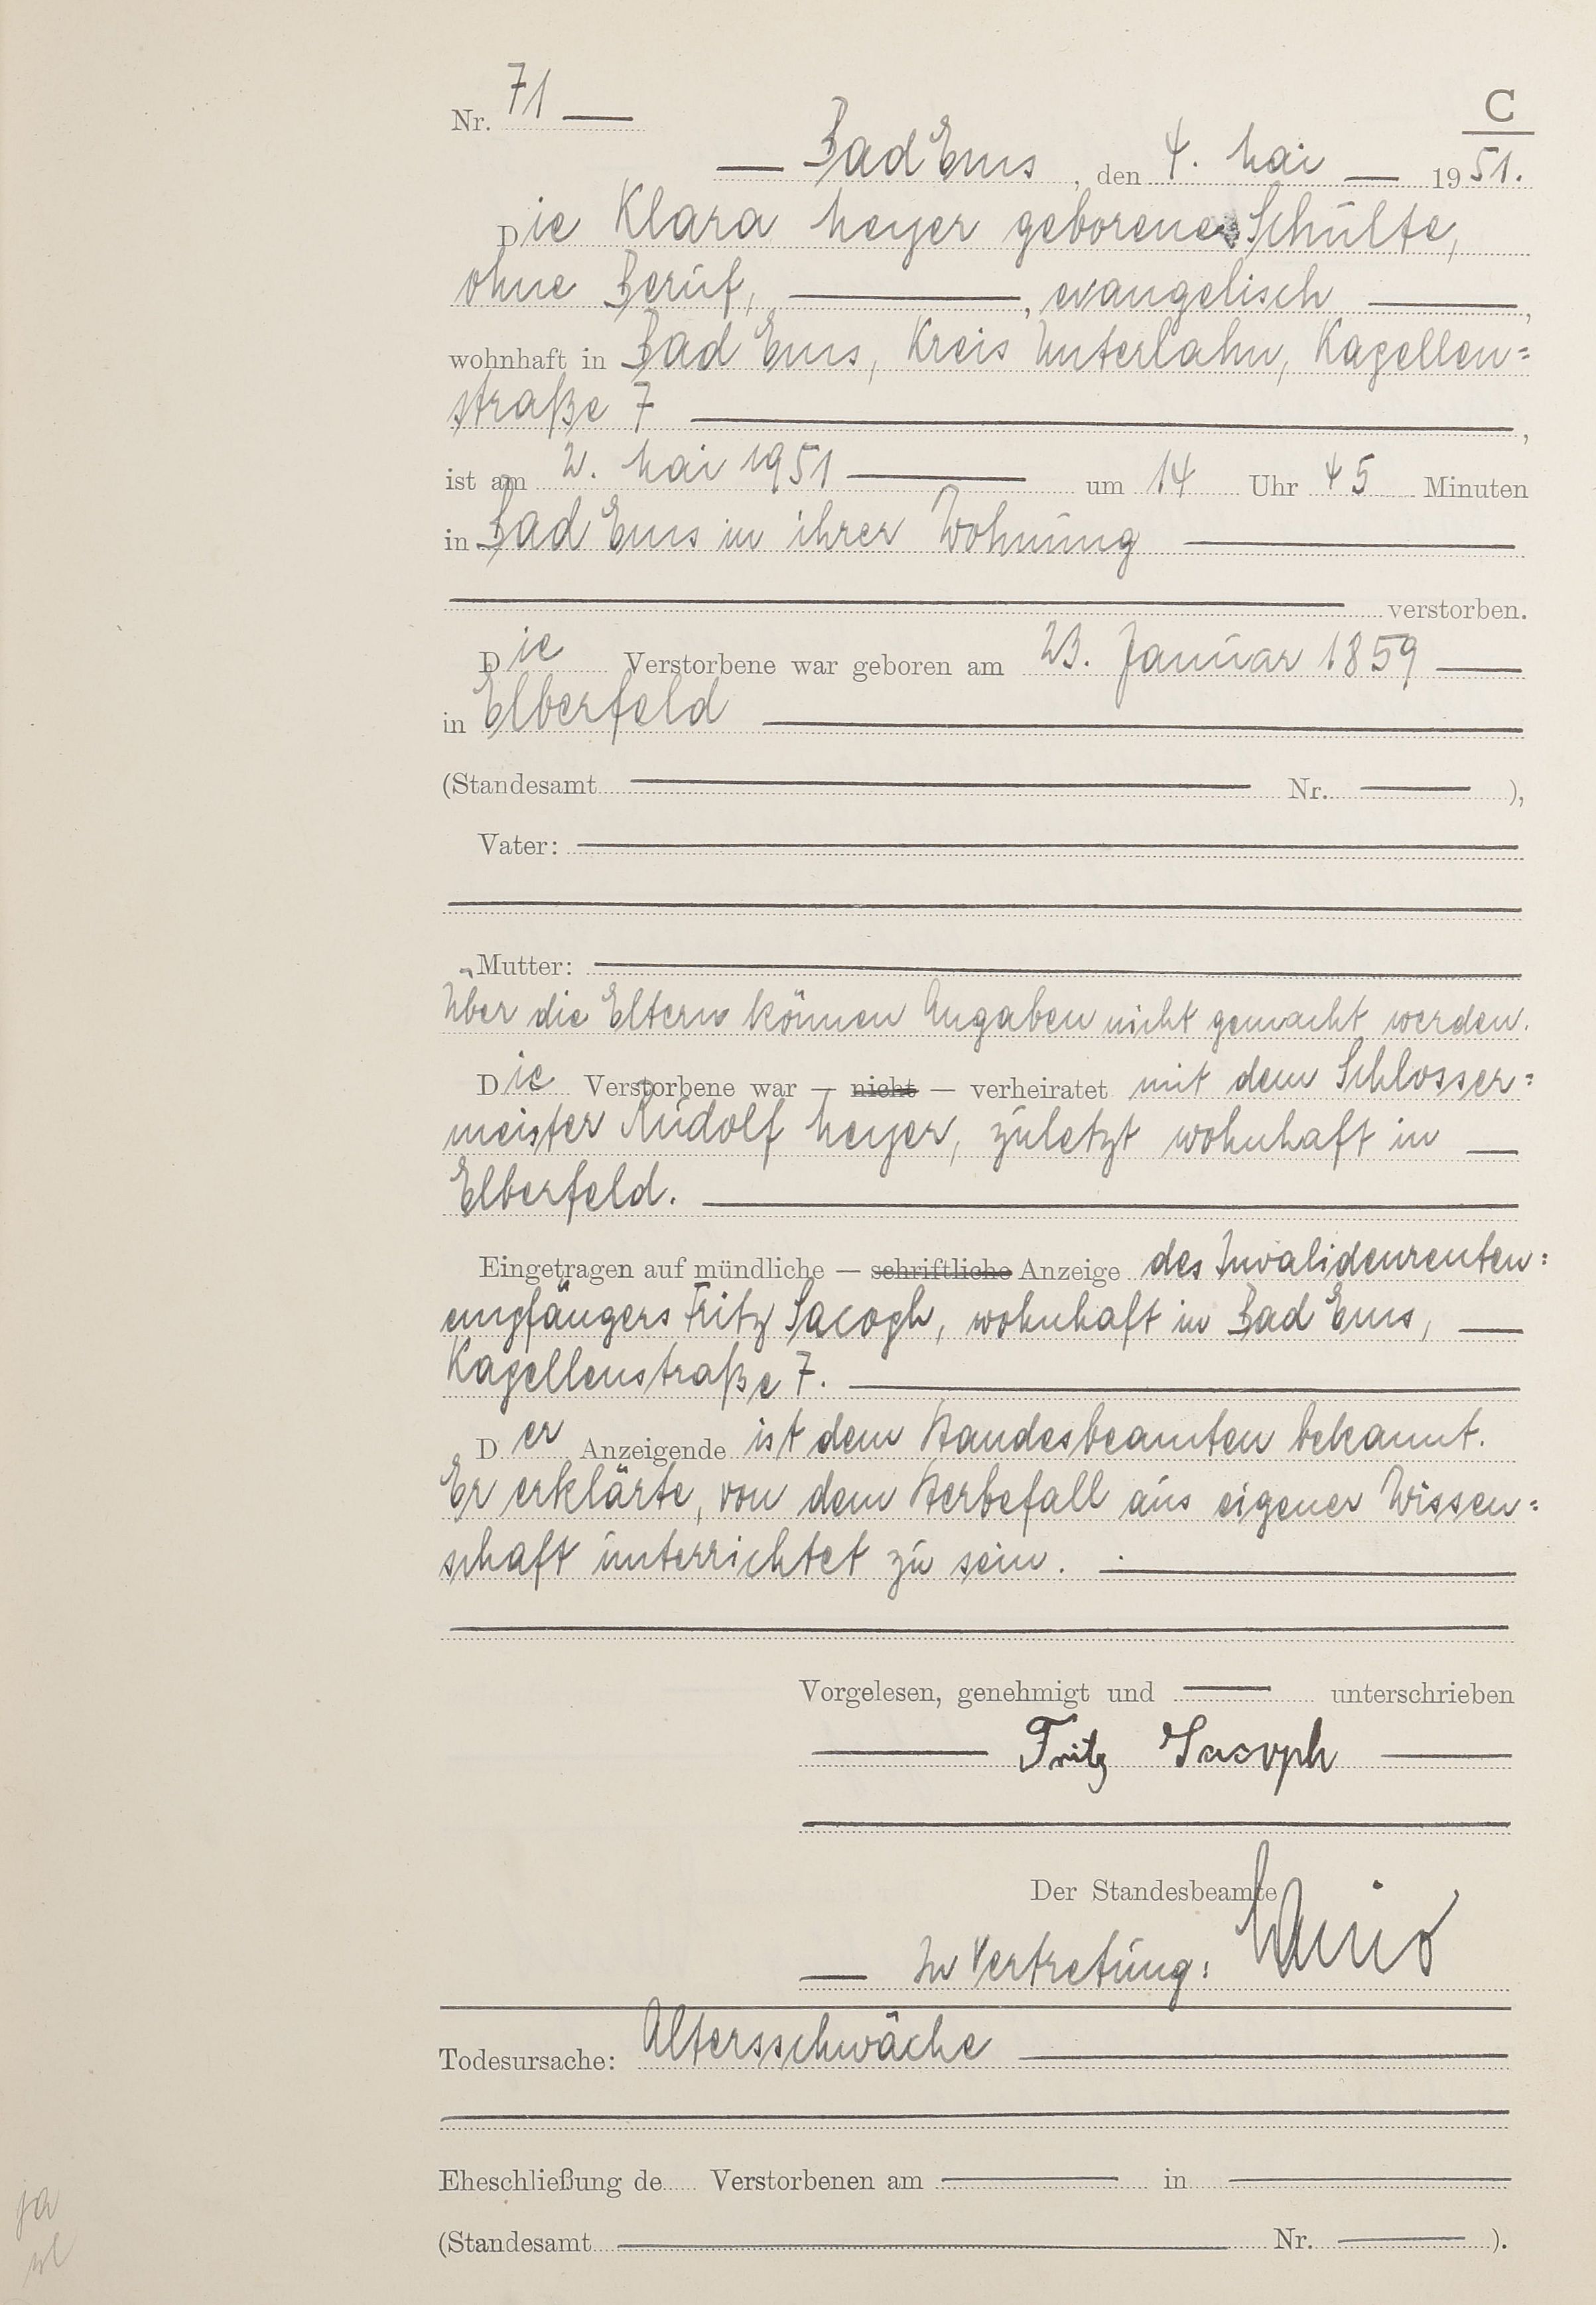 Nr. 71 —
C
— Bad Ems, den 4. Mai — 1951.
Die Klara Meyer geborene Schulte,
ohne Beruf, —, evangelisch —,
wohnhaft in Bad Ems, Kreis Unterlahn, Kapellen=
straße 7 —,
ist am 2. Mai 1951 — um 14 Uhr 45 Minuten
in Bad Ems in ihrer Wohnung —
— verstorben.
Die Verstorbene war geboren am 23. Januar 1859 —
in Elberfeld —
(Standesamt — Nr. — ),
Vater: —
Mutter: —
Über die Eltern können Angaben nicht gemacht werden.
Die Verstorbene war — nicht — verheiratet mit dem Schlosser=
meister Rudolf Meyer, zuletzt wohnhaft in —
Elberfeld. —
Eingetragen auf mündliche — schriftliche Anzeige des Invalidenrenten=
empfängers Fritz Sacoph, wohnhaft in Bad Ems, —
Kapellenstraße 7. —
Der Anzeigende ist dem Standesbeamten bekannt.
Er erklärte, von dem Sterbefall aus eigener Wissen=
schaft unterrichtet zu sein. —
Vorgelesen, genehmigt und — unterschrieben
— Fritz Sacoph —
Der Standesbeamte
— In Vertretung:
Todesursache: Altersschwäche —
Eheschließung de Verstorbenen am — in —
(Standesamt — Nr. — ).